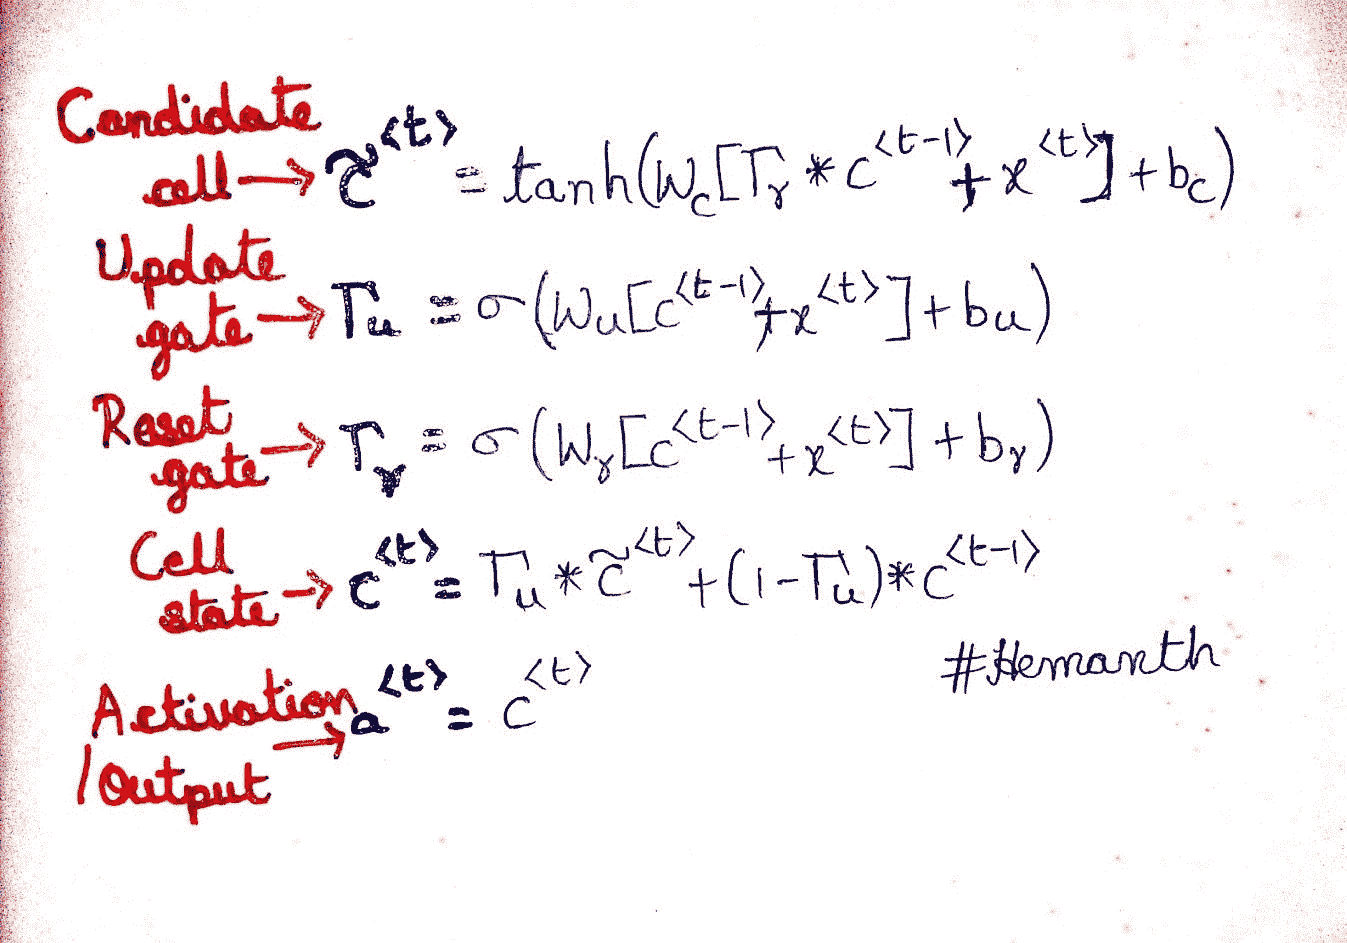 Candidate
cell → c̃^<t> = tanh(W_c[Γ_r * c^<t-1> + x^<t>] + b_c)
Update
gate → Γ_u = σ(W_u[c^<t-1> + x^<t>] + b_u)
Reset
gate → Γ_r = σ(W_r[c^<t-1> + x^<t>] + b_r)
Cell
state → c^<t> = Γ_u * c̃^<t> + (1-Γ_u) * c^<t-1>
#Hemanth
Activation
/Output → a^<t> = c^<t>